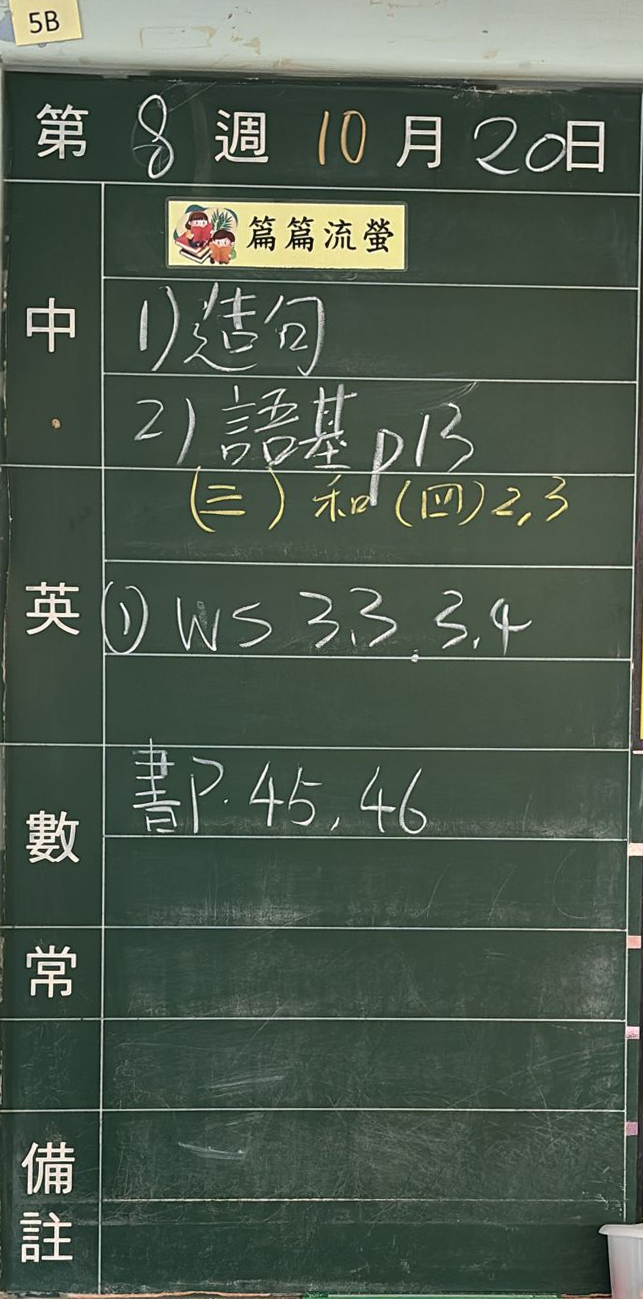 5B
第 8 週 10 月 20 日
篇篇流螢
中
1) 造句
2) 語基 p13
(三) 和 (四) 2,3
英
① WS 3.3, 3.4
數
書P. 45, 46
常
備註